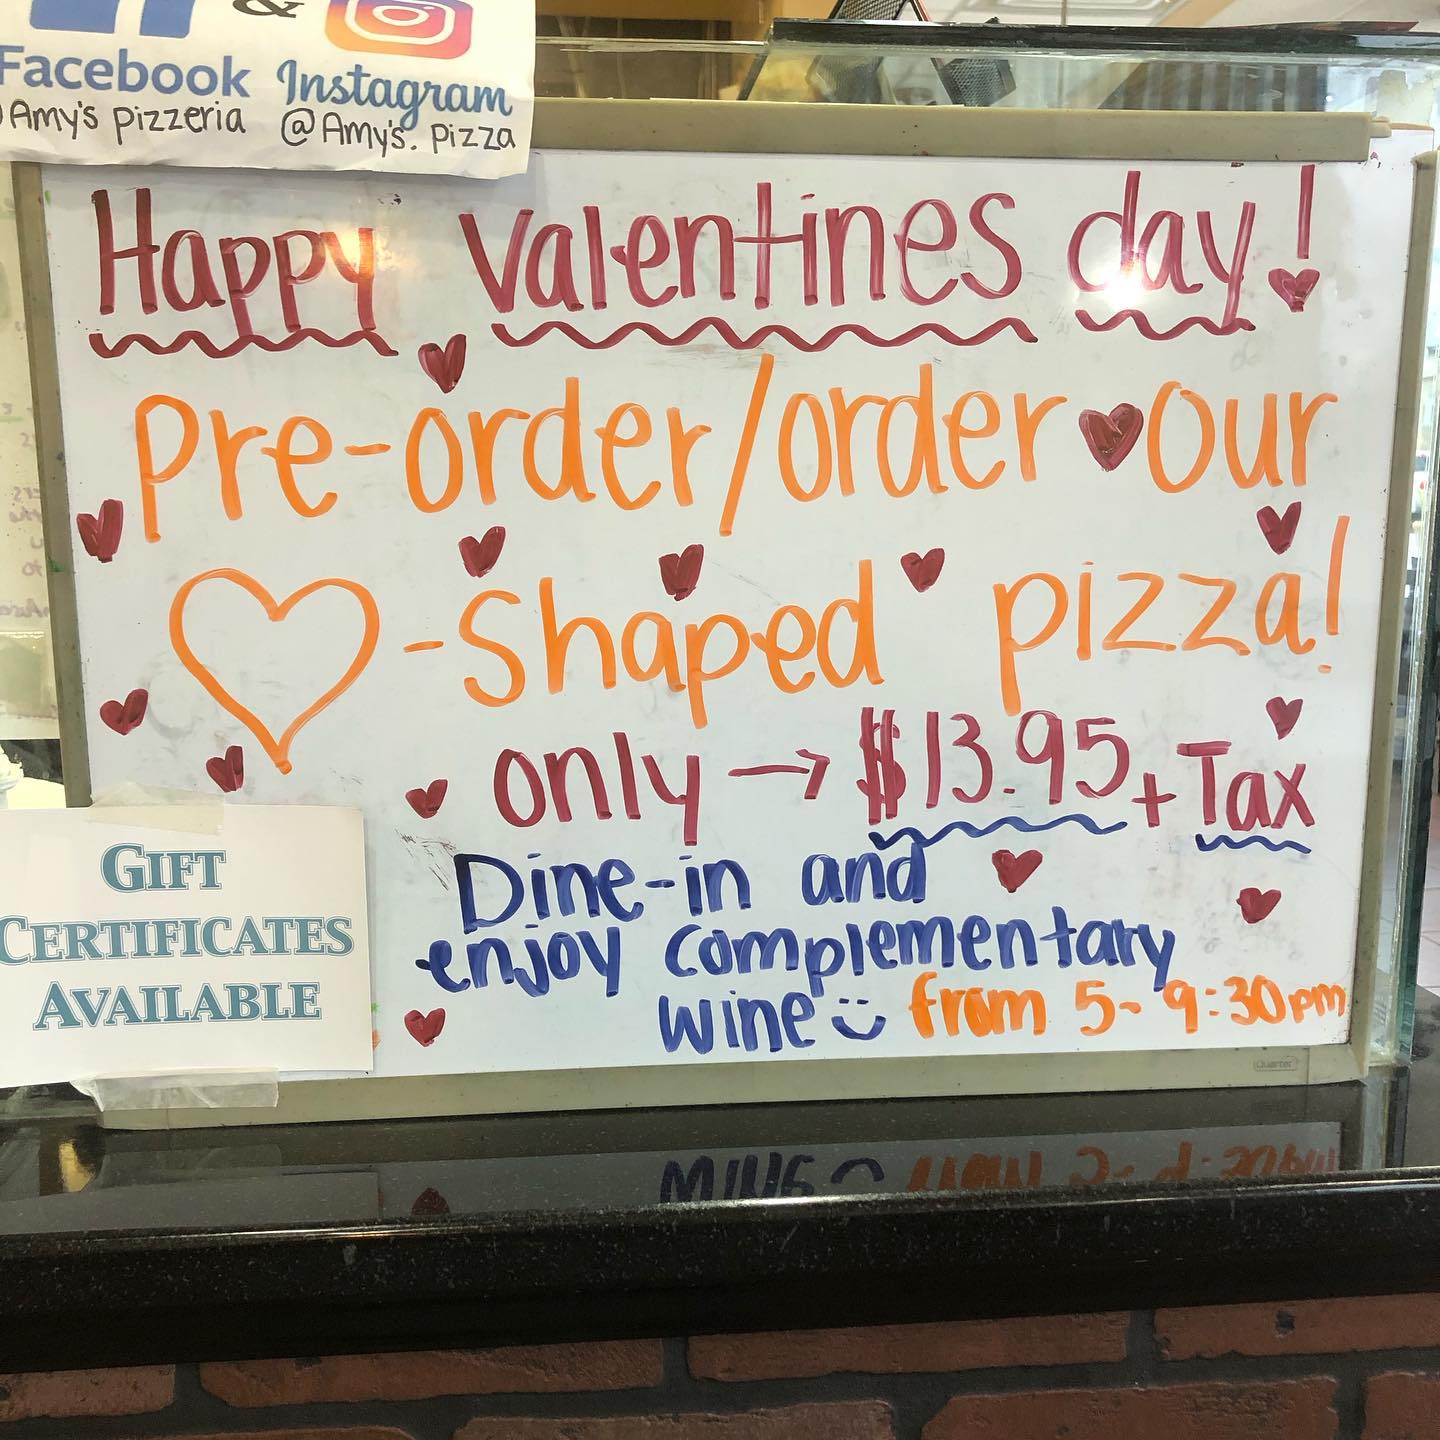 &
Facebook Instagram
Amy's pizzeria @Amy's. pizza
Happy Valentines day!
Pre-order/order our
-Shaped pizza!
only → $13.95 + Tax
Dine-in and
enjoy complementary
wine from 5-9:30pm
GIFT
CERTIFICATES
AVAILABLE
Quartet